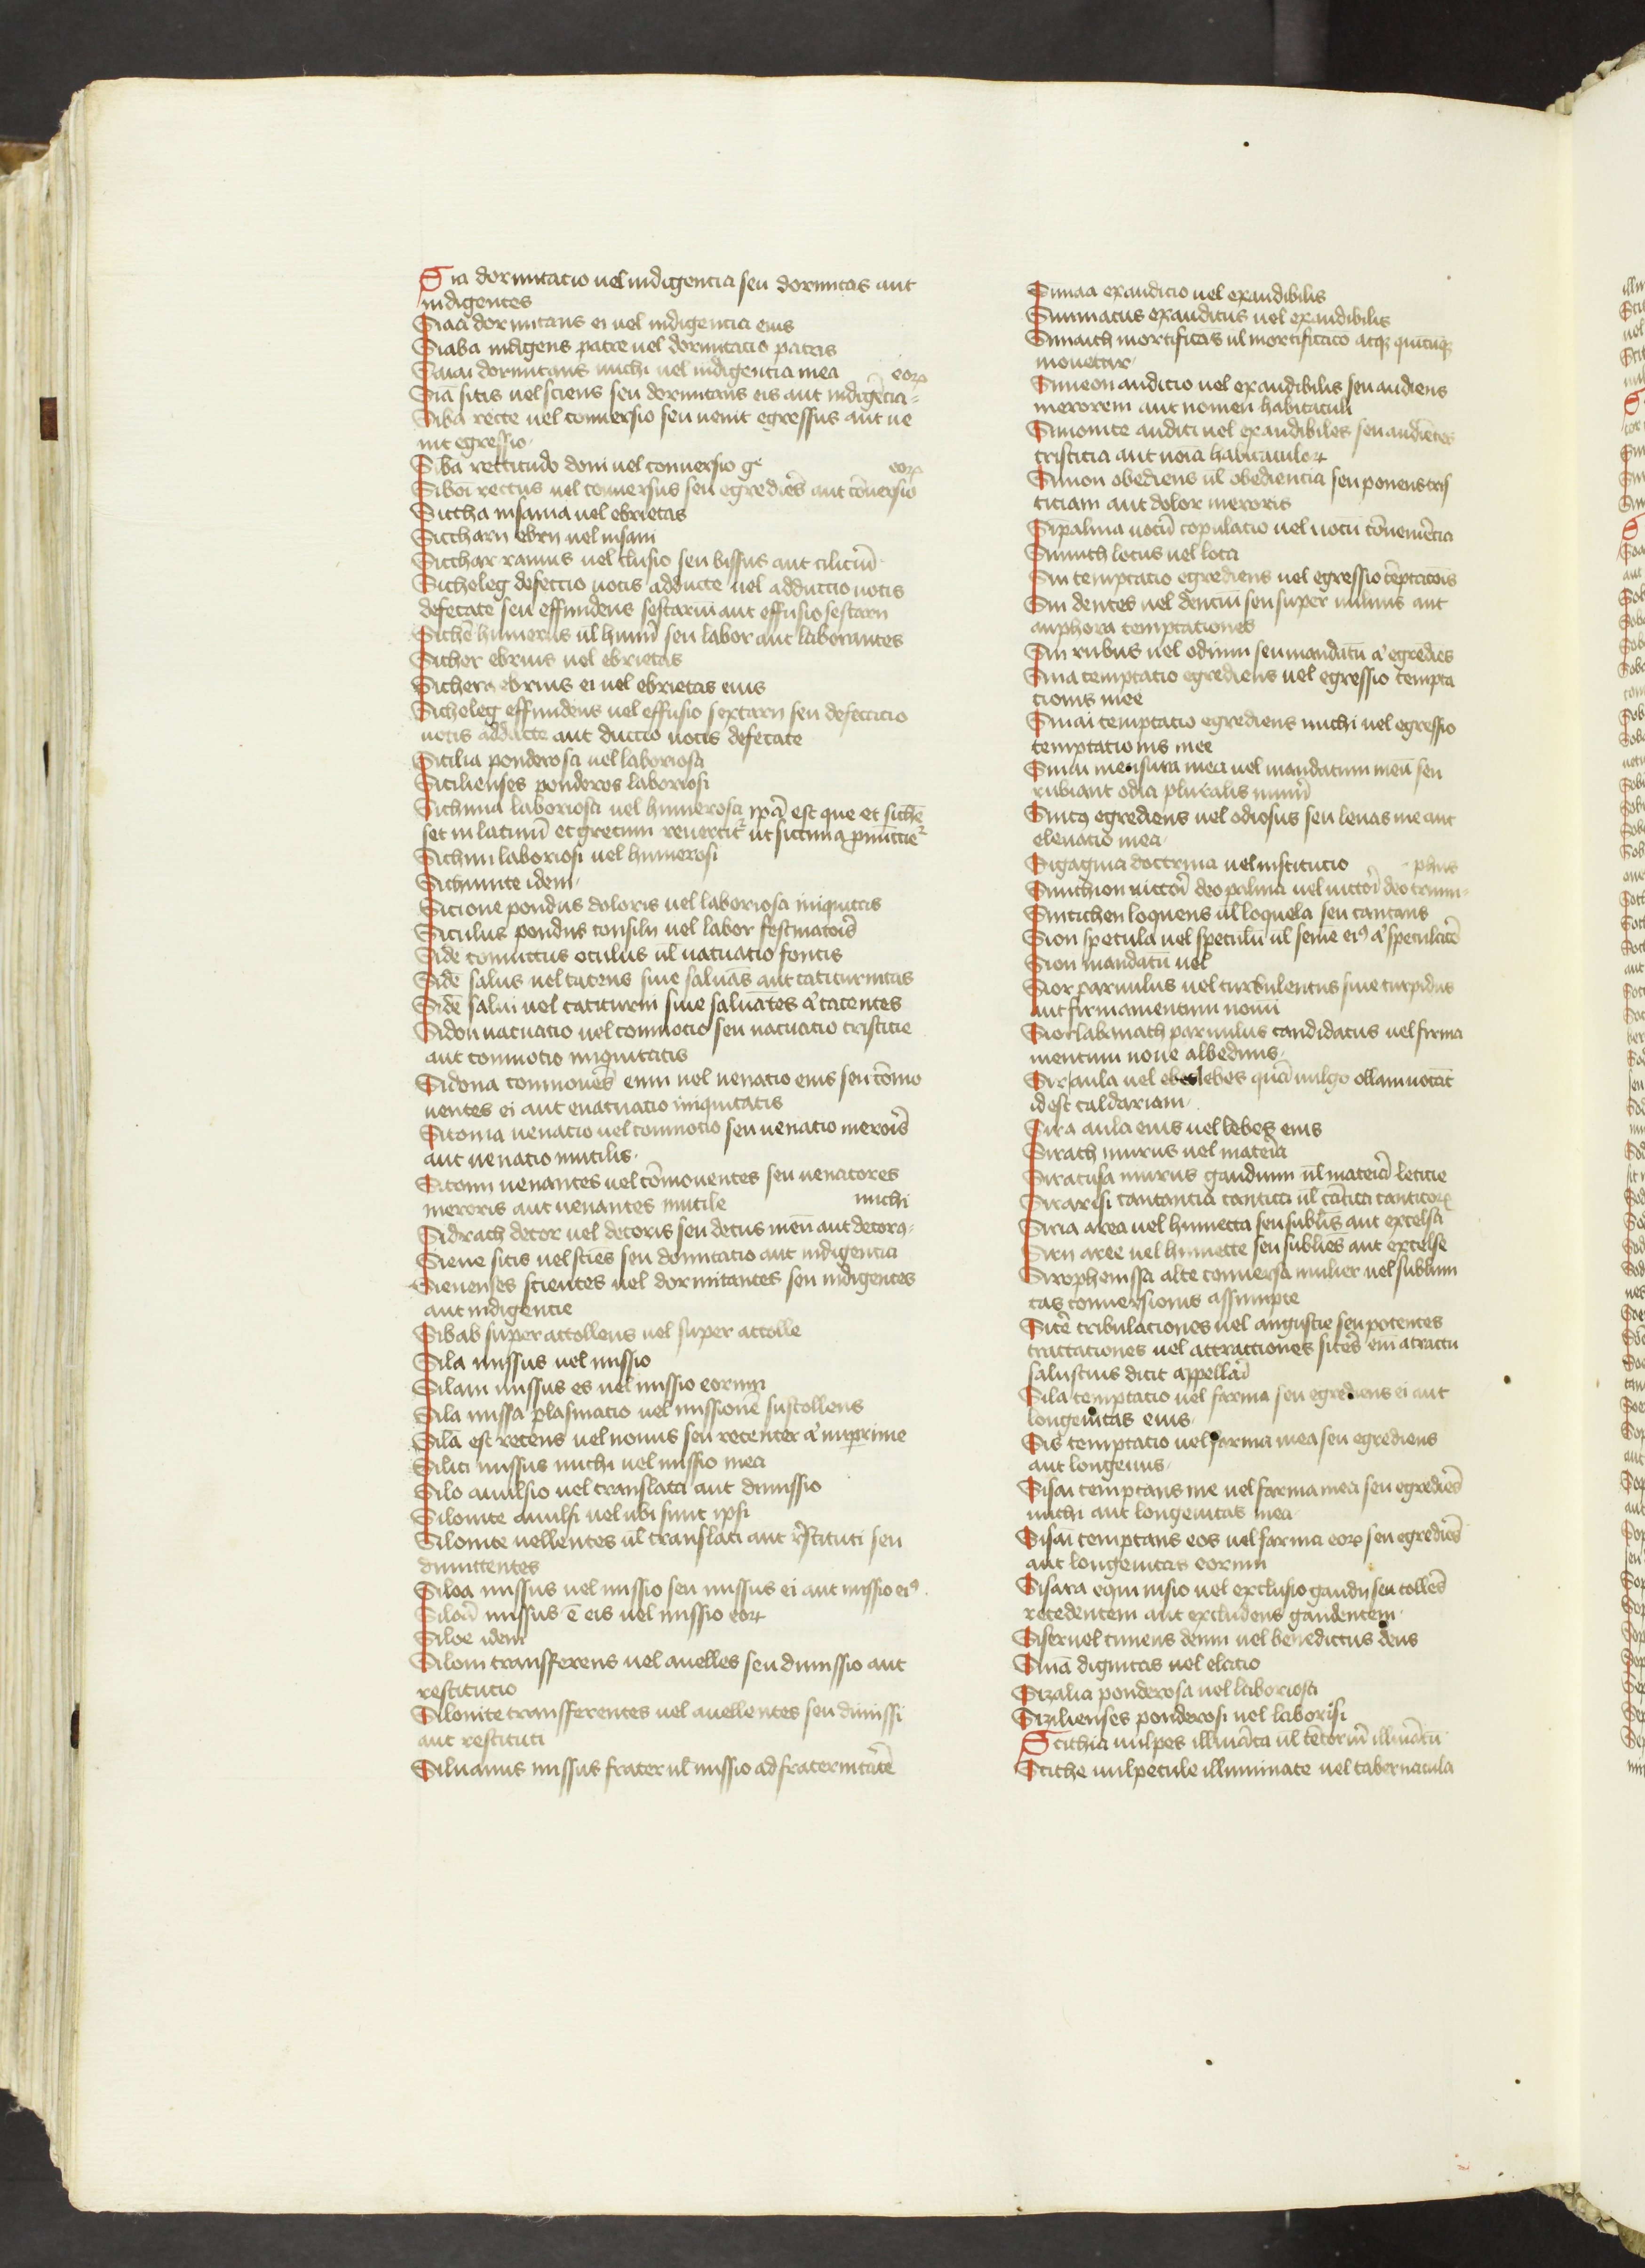 Sia dormitacio uel indigencia seu dormitas aut
indigentes
Siaa dormitans ei uel indigencia eius
Siaba indigens patre uel dormitacio patris
Siaiai dormitans michi uel indigencia mea
eoꝝ
Siā sitis uel sciens seu dormitans eis aut indigēcia
Siba recte uel conuersio seu uenit egressus aut ue
nit egressio
Siba rectitudo doni uel conuersio ge
eoꝝ
Siboi rectus uel conuersus seu egrediēs aut cōuersio
Siccha insania uel ebrietas
Siccharii ebrii uel insani
Sicchar ramus uel clusio seu bissus aut ciliciū
Sicheleg defectio uocis adducte uel adductio uocis
defecate seu effundens sestarium aut effusio sestarii
Sichē humerus ul̄ humī seu labor aut laborantes
Sicher ebrius uel ebrietas
Sichera ebrius ei uel ebrietas eius
Sicheleg effundens uel effusio sextarii seu defectio
uocis adducte aut ductio uocis defecate
Sicilia ponderosa uel laboriosa
Sicilienses ponderos laboriosi
Sichima laboriosa uel humerosa ipā est que et sichē
set in latinū et grecum reuertit᷑ ut sicima ꝓnūcciet᷑
Sichimi laboriosi uel humerosi
Sichimite idem
Sicione pondus doloris uel laboriosa iniquitas
Siculus pondus consilii uel labor festinatōis
Side coniuctus oculus ul̄ uacuatio fontis
Sidē salus uel tacens siue saluās aut taciturnitas
Sidē salui uel taciturni siue saluātes a᷑ tacentes
Sidon uacuatio uel conmotio seu uacuatio tristicie
aut conmotio iniquitatis
Sidona conmouēs eum uel uenatio eius seu cōmo
uentes ei aut euacuatio iniquitatis
Sitonia uenatio uel conmotio seu uenatio merorīs
aut uenatio inutilis
Sitonii uenantes uel cōmouentes seu uenatores
meroris aut uenantes inutile
michi
Sidrach decor uel decoris seu decus meū aut decorꝰ
Siene sitis uel sciēs seu domitatio aut indigencia
Sienenses scientes uel dormitantes seu indigentes
aut indigentie
Sibab super attollens uel super attolle
Sila missus uel missio
Silam missus es uel missio eorum
Sila missa plasmatio uel missionē sustollens
Silā est recens uel nouus seu recenter a᷑ imprime
Silai missus michi uel missio mea
Silo auulsio uel translata aut dimissio
Silonite auulsi uel ubi sunt ipsi
Silonite uellentes ul̄ translati aut r̄stituti seu
dimittentes
Siloa missus uel missio seu missus ei aut missio eiꝰ
Siloā missus ē eis uel missio eoꝝ
Siloe idem
Silom transfferens uel auelles seu dimissio aut
restitutio
Silonite transfferentes uel auellentes seu dimissi
aut restituti
Siluanus missus frater ul̄ missio ad fraternitatē
Simaa exauditio uel exaudibilis
Simmacus exauditus uel exaudibilis
Simaith mortificās ul̄ mortificatio atqꝫ quicūqꝫ
mouetur
Simeon auditio uel exaudibilis seu audiens
merorem aut nomen habitaculi
Simonite auditi uel exaudibiles seu audiētes
tristicia aut noīa habitaculoꝝ
Simon obediens ul̄ obediencia seu ponens tris
ticiam aut dolor meroris
Sipalma uocū copulatio uel uocū cōueniēcia
Simith locus uel loca
Sin temptatio egrediens uel egressio tēptatōis
Sin dentes uel dentiū seu super nimis aut
anphora temptationes
Sin rubus uel odium seu mandatū a᷑ egrediēs
Sina temptatio egrediens uel egressio tempta
tionis mee
Sinai temptatio egrediens michi uel egressio
temptatio nis mee
Sinai mensura mea uel mandatum meū seu
rubi aut odia pluralis numī
Sinicꝰ egrediens uel odiosus seu lenas me aut
eleuatio mea
Sigagina doctrina uel institutio
phus
Sinichion uictorī deo palma uel uictorī deo trium
Sintichen loquens ul̄ loquela seu cantans
Sion specula uel speculū ul̄ semē eiꝰ a᷑ speculatō
Sion mandatū uel
Sior paruulus uel turbulentus siue turpidus
aut firmamentum nouū
Siorlabanath paruulus candidatus uel firma
mentum noue albedinis
Sir aula uel ebes lebes quā uulgo ollam uocāt
id est caldariam
Sira aula eius uel lebes eius
Sirach murus uel materia
Siracusa murus gaudium ul̄ materiā leticie
Sirarisi cantantia cantica ul̄ cātica canticoꝝ
Siria area uel humecta seu sublīs aut excelsa
Sirii aree uel humecte seu sublīes aut excelse
Sirophenissa alte conuersa mulier uel sublimi
tas conuersionis assumpte
Sitē tribulationes uel angustie seu potentes
tractationes uel attractiones sites em̄ atractu
salustius dicit appellarī
Sila temptatio uel farma seu egrediens ei aut
longeuitas eius
Sis temptatio uel farma mea seu egrediens
aut longeuus
Sisai temptans me uel farma mea seu egrediēs
michi aut longeuitas mea
Sisāi temptans eos uel farma eoꝝ seu egrediēs
aut longeuitas eorum
Sisara equi uisio uel exclusio gaudii seu tollēs
recedentem aut excludens gaudentem
Sisrruel timens deum uel benedictus deus
Siuā dignitas uel elatio
Sizalia ponderosa uel laboriosa
Sizilienses ponderosi uel laborisi
Scithia uulpes illuīata ul̄ tētoriū illuīatū
Scithe uulpecule illuminate uel tabernacula